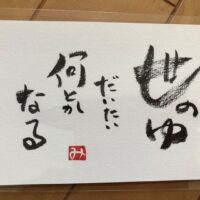 世の中
だいたい
何とか
なる
み